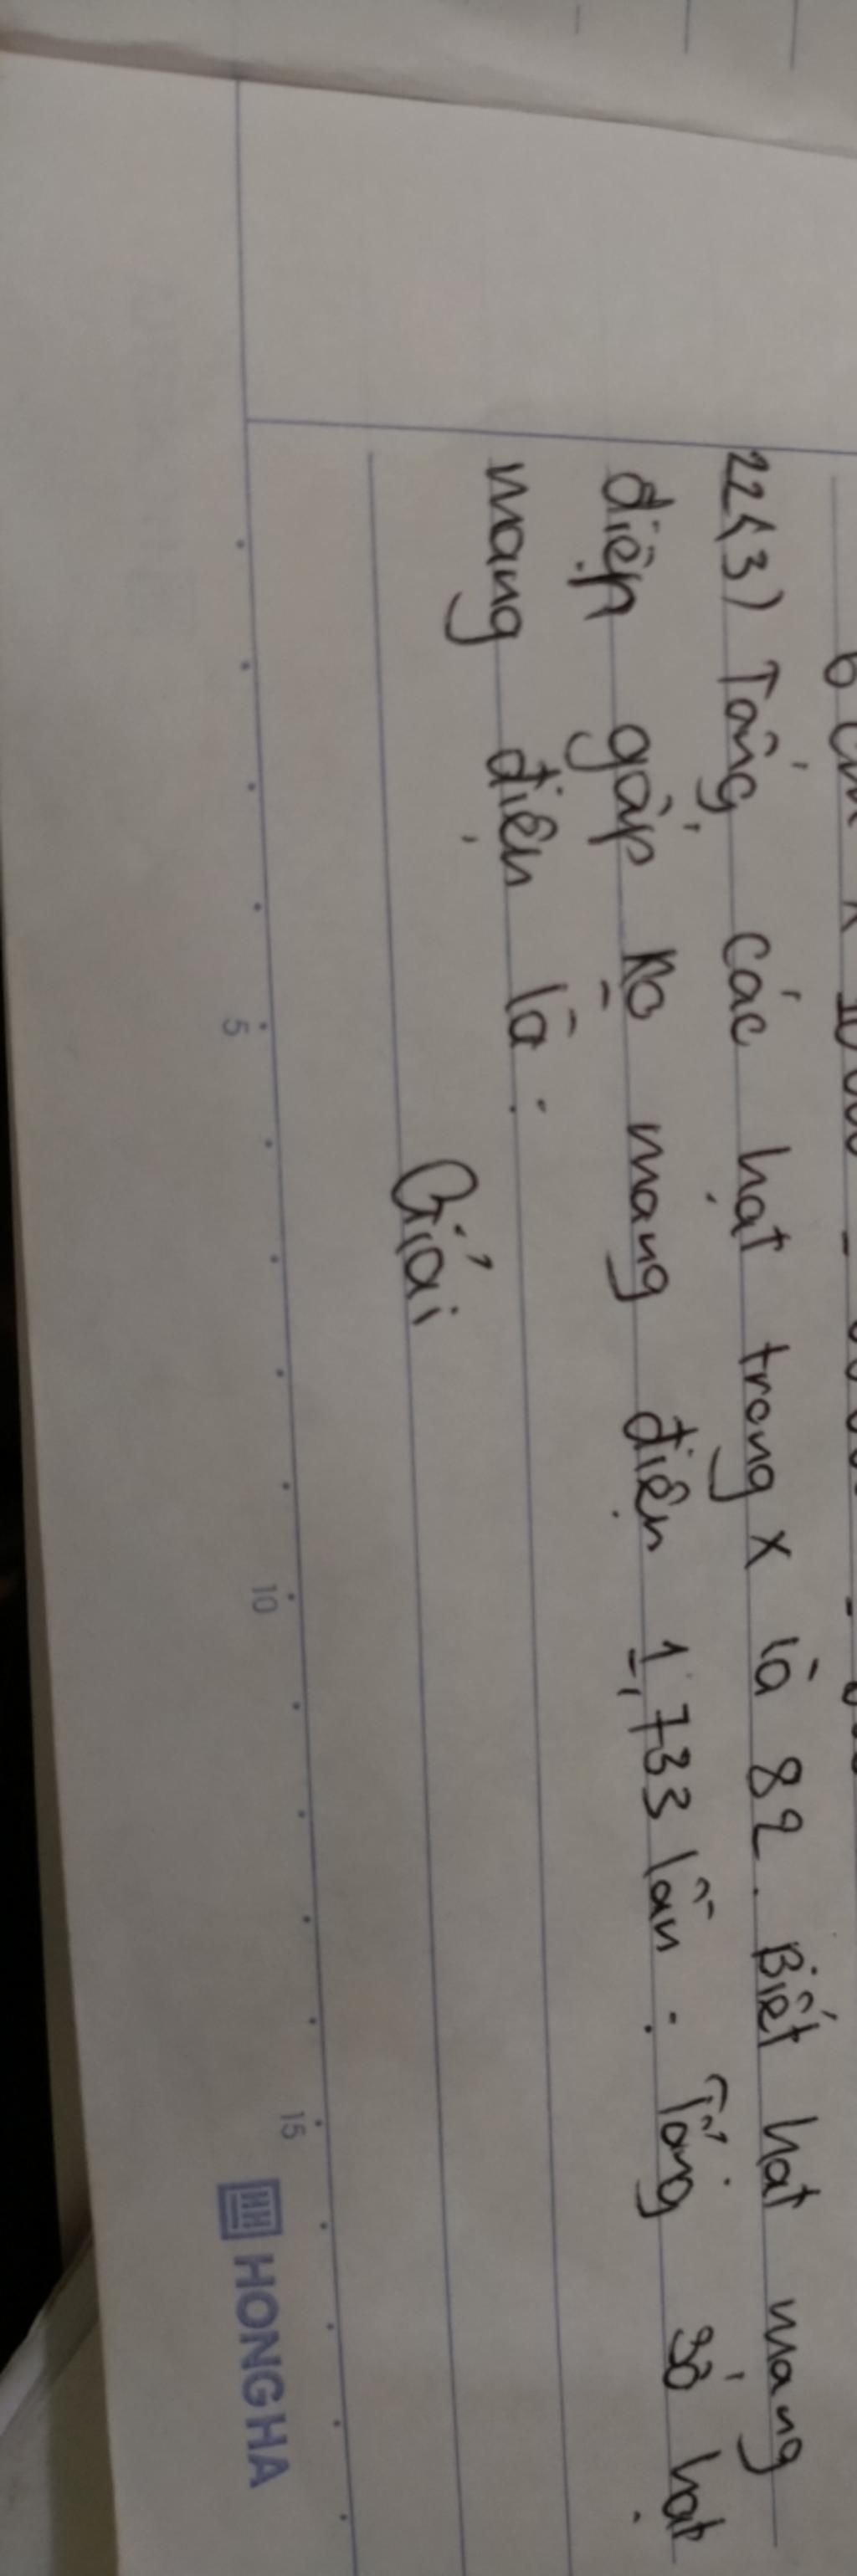 2243) Tổng các hạt trong X là 82. Biết hạt mang
điện gấp ko mang điện 1,733 lần. Tổng số hạt
mang điện là:
Giải
5 10 15 HONG HA